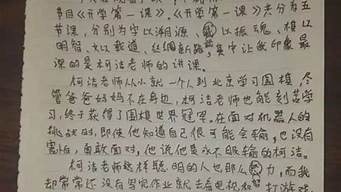 节目《开学第一课》,《开学第一课》共分为五
节课,分别为字以溯源、武以振魂、棋以
明智、文以载道、丝绸新路,其中让我印象最
深的是柯洁老师的讲课。
柯洁老师从小就一个人到北京学习围棋,尽
管爸爸妈妈不在身边,柯洁老师也能刻苦学
习,终于获得了围棋世界冠军。在面对机器人的
挑战时,即使他知道自己很可能会输,也没有
害怕,勇敢面对,他说他是永不服输的柯洁。
柯洁老师这样聪明的人也那么努力,而我
却常常还没有写完作业就去看电视和打游戏